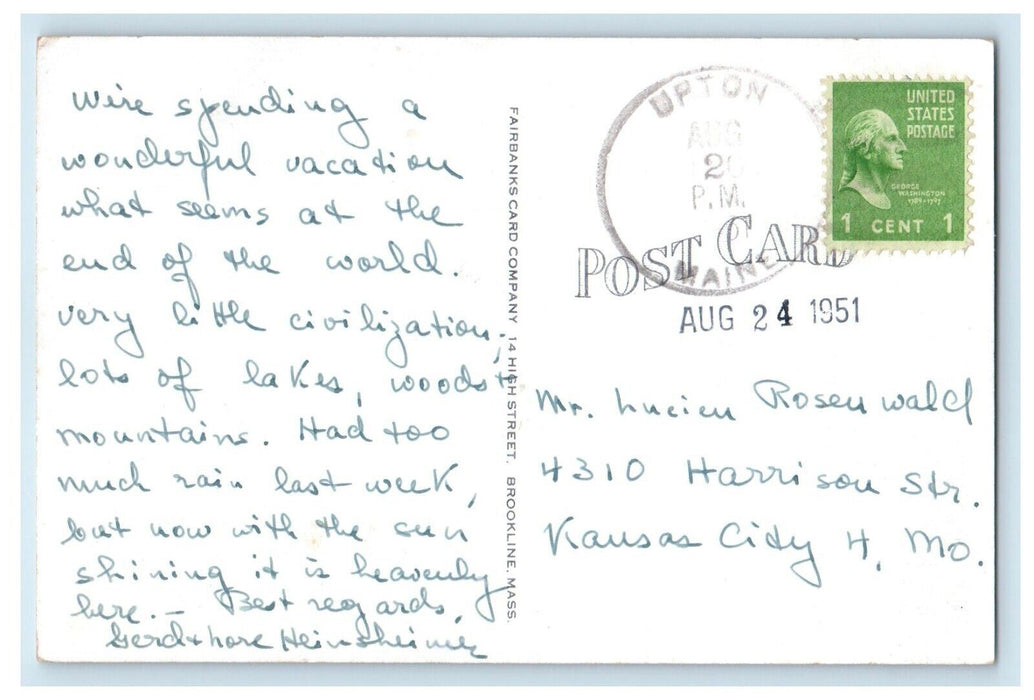 We're spending a
wonderful vacation
what seems at the
end of the world.
very little civilization,
lots of lakes, woods +
mountains. Had too
much rain last week,
but now with the sun
shining it is heavenly
here. — Best regards,
Gerd + Lore Heinsheimer
FAIRBANKS CARD COMPANY 14 HIGH STREET. BROOKLINE, MASS.
UPTON
AUG
20
P.M.
MAINE
UNITED
STATES
POSTAGE
GEORGE
WASHINGTON
1789-1797
1 CENT 1
POST CARD
AUG 24 1951
Mr. Lucien Rosenwald
4310 Harrison Str.
Kansas City 4, Mo.